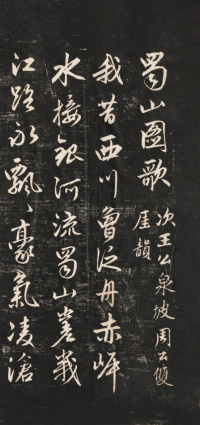 蜀山圖歌
次王公泉坡周公雙
厓韻
我昔西川曾泛舟赤岸
水接銀河流蜀山峩峩
江路永飄飄豪氣凌滄